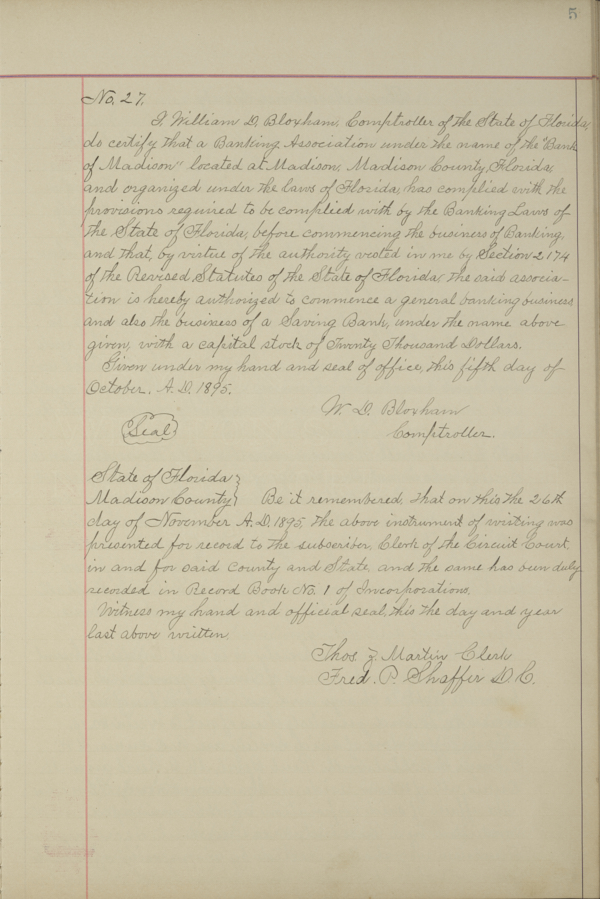 5
No. 27.
I, William D. Bloxham, Comptroller of the State of Florida,
do certify that a Banking Association under the name of the "Bank
of Madison" located at Madison, Madison County, Florida,
and organized under the laws of Florida, has complied with the
provisions required to be complied with by the Banking Laws of
the State of Florida, before commencing the business of Banking,
and that, by virtue of the authority vested in me by Section 2174
of the Revised Statutes of the State of Florida, the said associa-
tion is hereby authorized to commence a general banking business
and also the business of a Saving Bank, under the name above
given, with a capital stock of Twenty Thousand Dollars.
Given under my hand and seal of office, this fifth day of
October. A.D. 1895.
W. D. Bloxham
Seal
Comptroller.
State of Florida }
Madison County } Be it remembered, that on this the 26th
day of November A.D. 1895, the above instrument of writing was
presented for record to the subscriber, Clerk of the Circuit Court,
in and for said county and State, and the same has been duly
recorded in Record Book No. 1 of Incorporations.
Witness my hand and official seal, this the day and year
last above written.
Thos Z. Martin Clerk
Fred. P. Shaffer D.C.